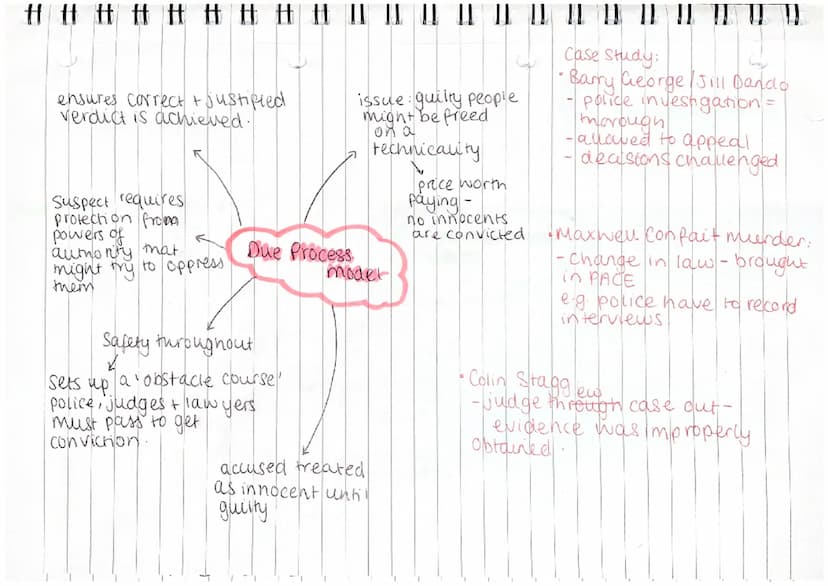 ensures correct + justified
verdict is achieved.
issue: guilty people
might be freed
on a
technicality
price worth
paying -
no innocents
are convicted
Suspect requires
protection from
powers of
authority that
might try to oppress
them
Due Process
model
Safety throughout
Sets up a 'obstacle course'
police, judges + lawyers
must pass to get
conviction.
accused treated
as innocent until
guilty
Case Study:
• Barry George / Jill Dando
- police investigation =
thorough
- allowed to appeal
- decisions challenged
• Maxwell Confait murder:
- change in law - brought
in PACE
e.g. police have to record
interviews
• Colin Stagg
- judge threw case out -
evidence was improperly
obtained.